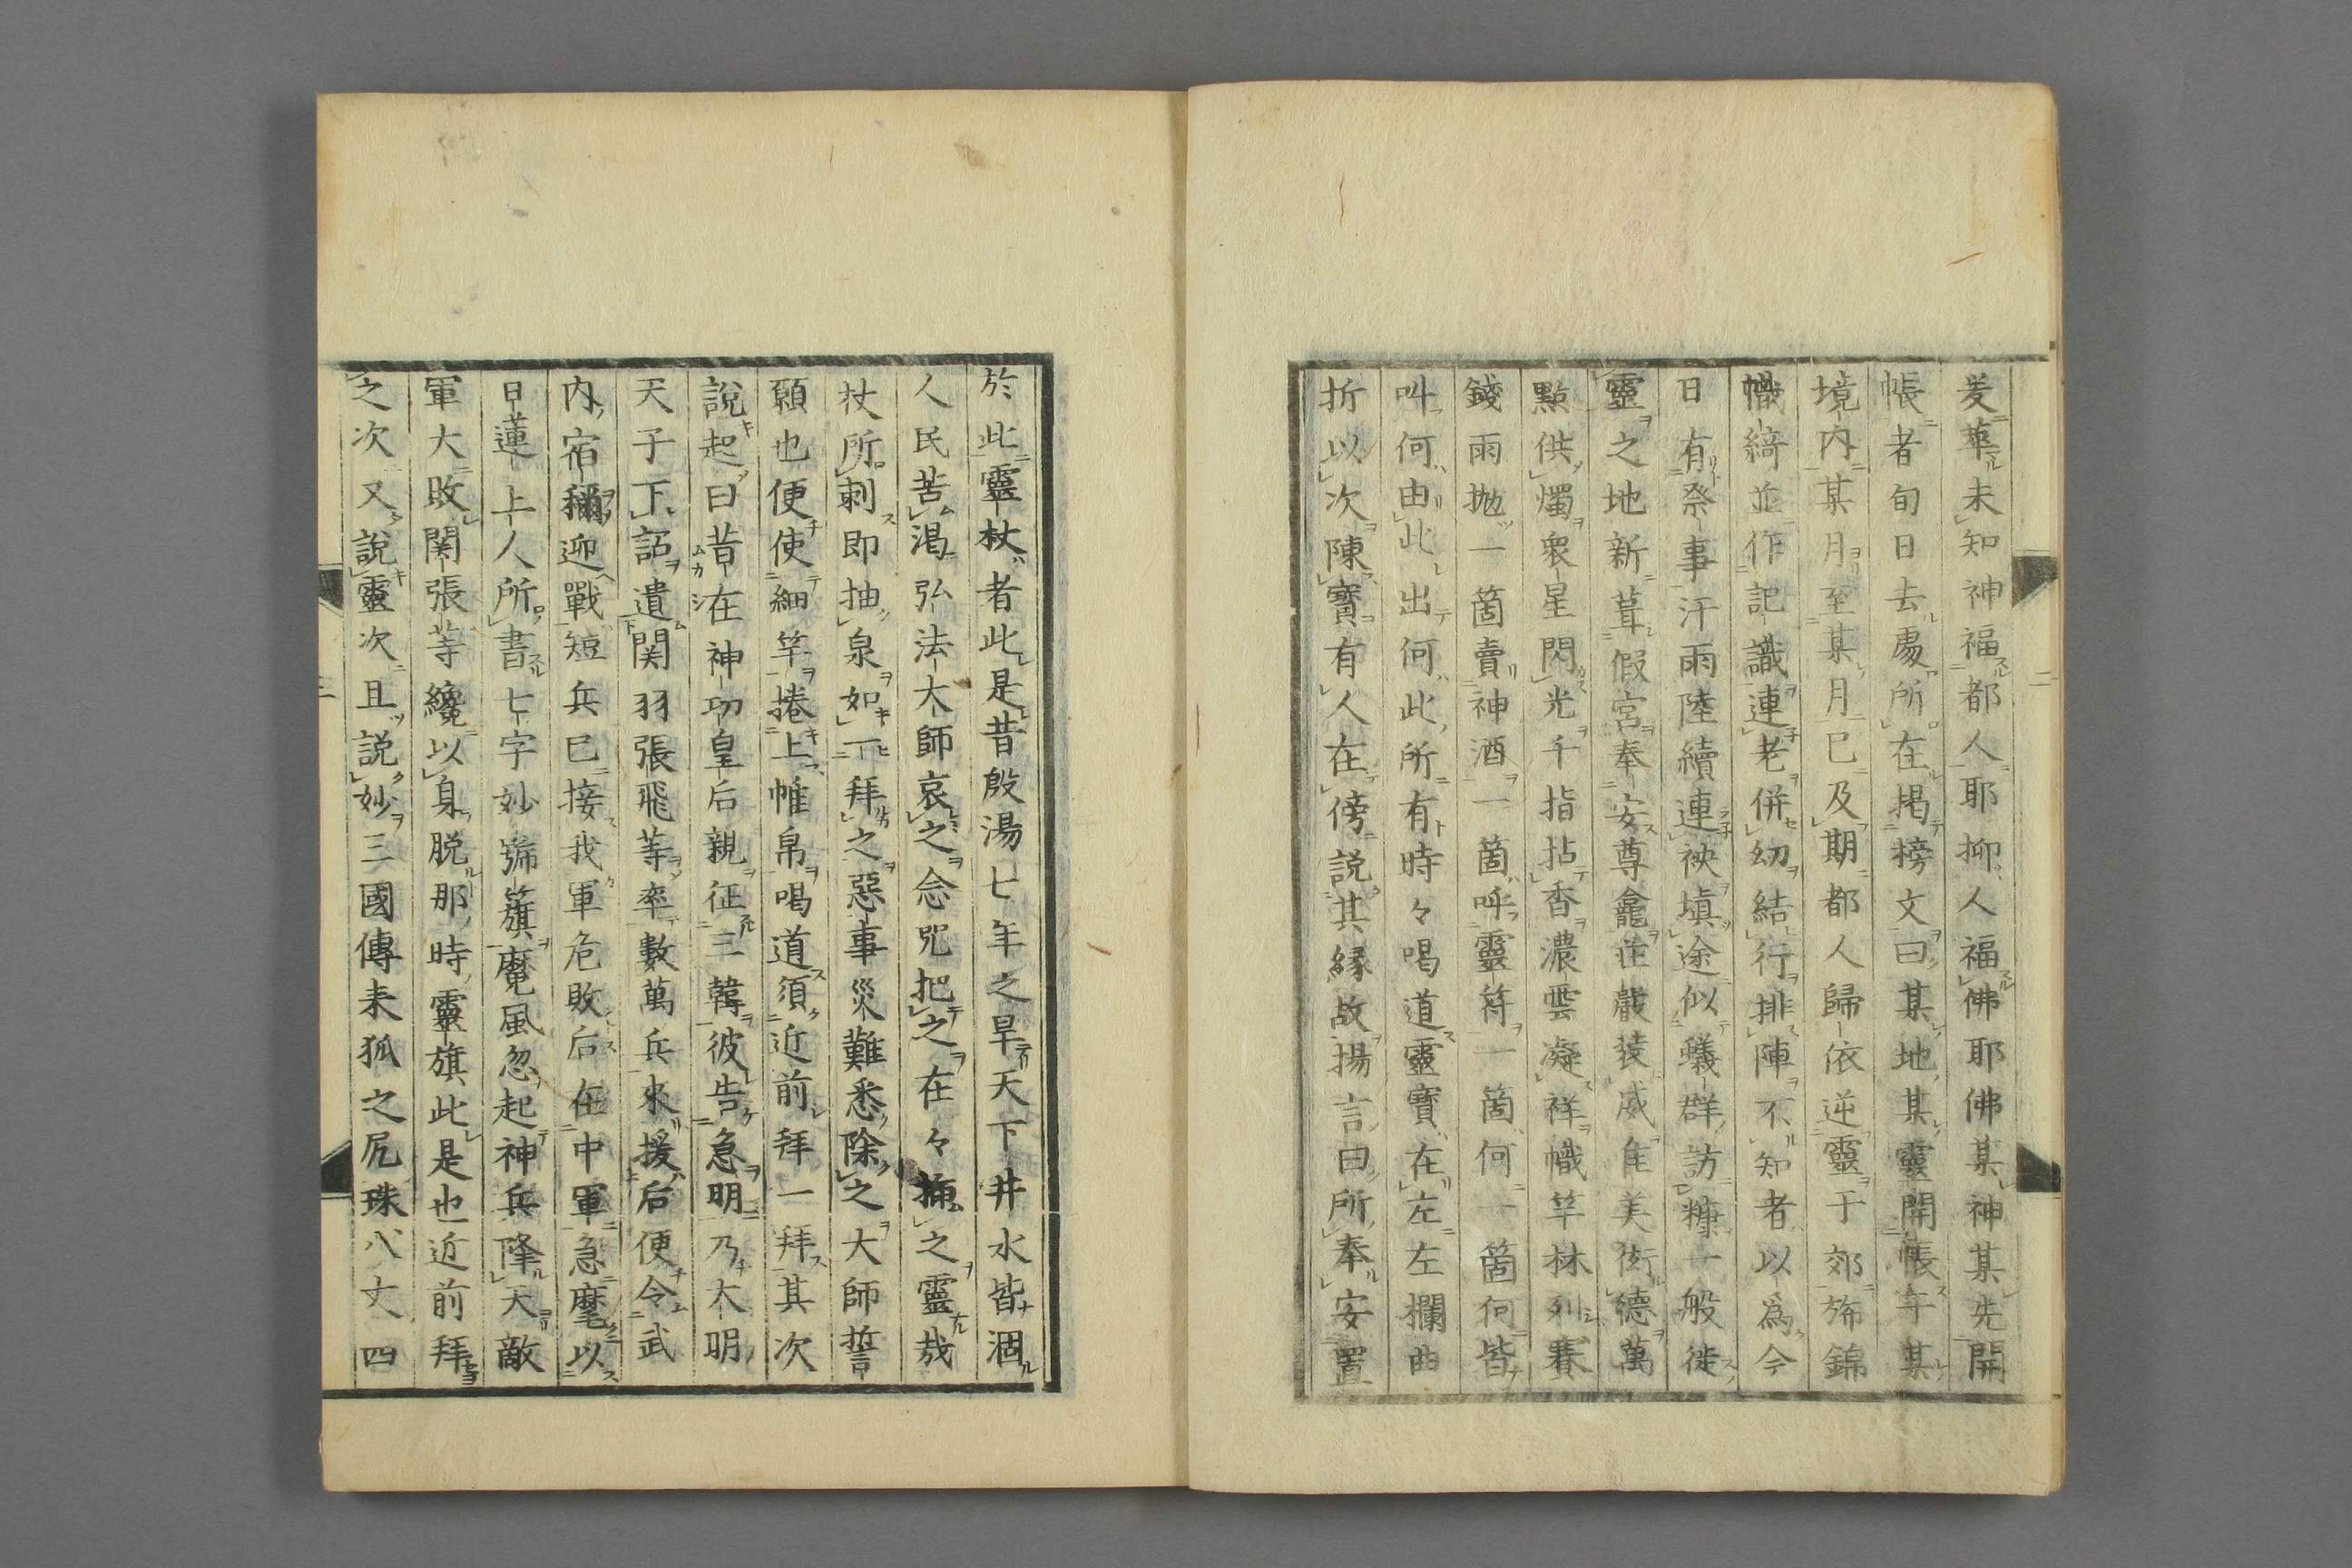 羙華未知神福都人耶抑人福佛耶佛某神某先開
帳者旬日去處所在掲榜文曰某地某靈開帳年某
境内某月至某月已及期都人歸依逆靈于郊旆錦
幟綺並作記識連老併幼結行排陣不知者以為今
日有祭事汗雨陸續連袂塡途似蟻群訪糖一般徙
靈之地新葺假宮奉安尊龕荘嚴装威隹美衒德萬
點供燭衆星閃光千指拈香濃雲凝祥幟竿林列賽
錢雨抛一箇賣神酒一箇呼靈符一箇何一箇何皆
叫何由此出何此所有時々喝道靈寶在左左欄曲
折以次陳寶有人在傍説其縁故揚言曰所奉安置
二
於此靈杖者此是昔殷湯七年之旱天下井水皆涸
人民苦渇弘法大師哀之念咒把之在々插之靈哉
杖所刺即抽泉如一拜之惡事災難悉除之大師誓
願也便使細竿捲上帷帛喝道須近前拜一拜其次
說起曰昔在神功皇后親征三韓彼告急明乃大明
天子下詔遣関羽張飛等率數萬兵來援后便令武
内宿禰迎戰短兵已接我軍危敗后在中軍急麾以
日蓮上人所書七字妙號籏魔風忽起神兵降天敵
軍大敗関張等纔以身脱那時靈旗此是也近前拜
之次又説靈次且説妙三國傳来狐之尻珠八丈四
三